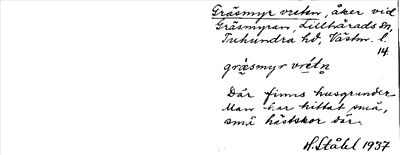 Gräsmyr vreten, åker vid
Gräsmyran, Lillhärads sn,
Tuhundra hd, Västm. l.
14.
gräsmyr vrétn
Där finns husgrunder
Man har hittat små,
små hästskor där.
H. Ståhl 1937